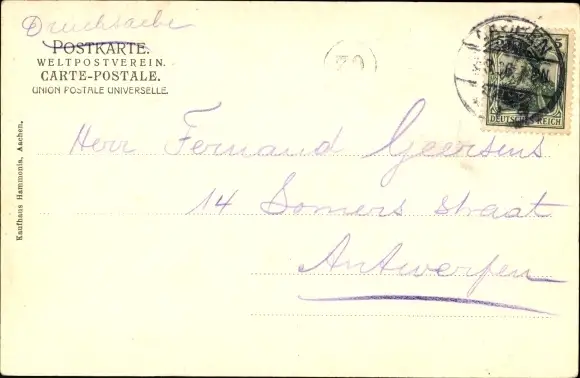 Drucksache
POSTKARTE.
WELTPOSTVEREIN.
CARTE-POSTALE.
UNION POSTALE UNIVERSELLE.
DEUTSCHES REICH
Herr Fernand Geersens
14 Somers straat
Antwerpen
Kaufhaus Hammonia, Aachen.